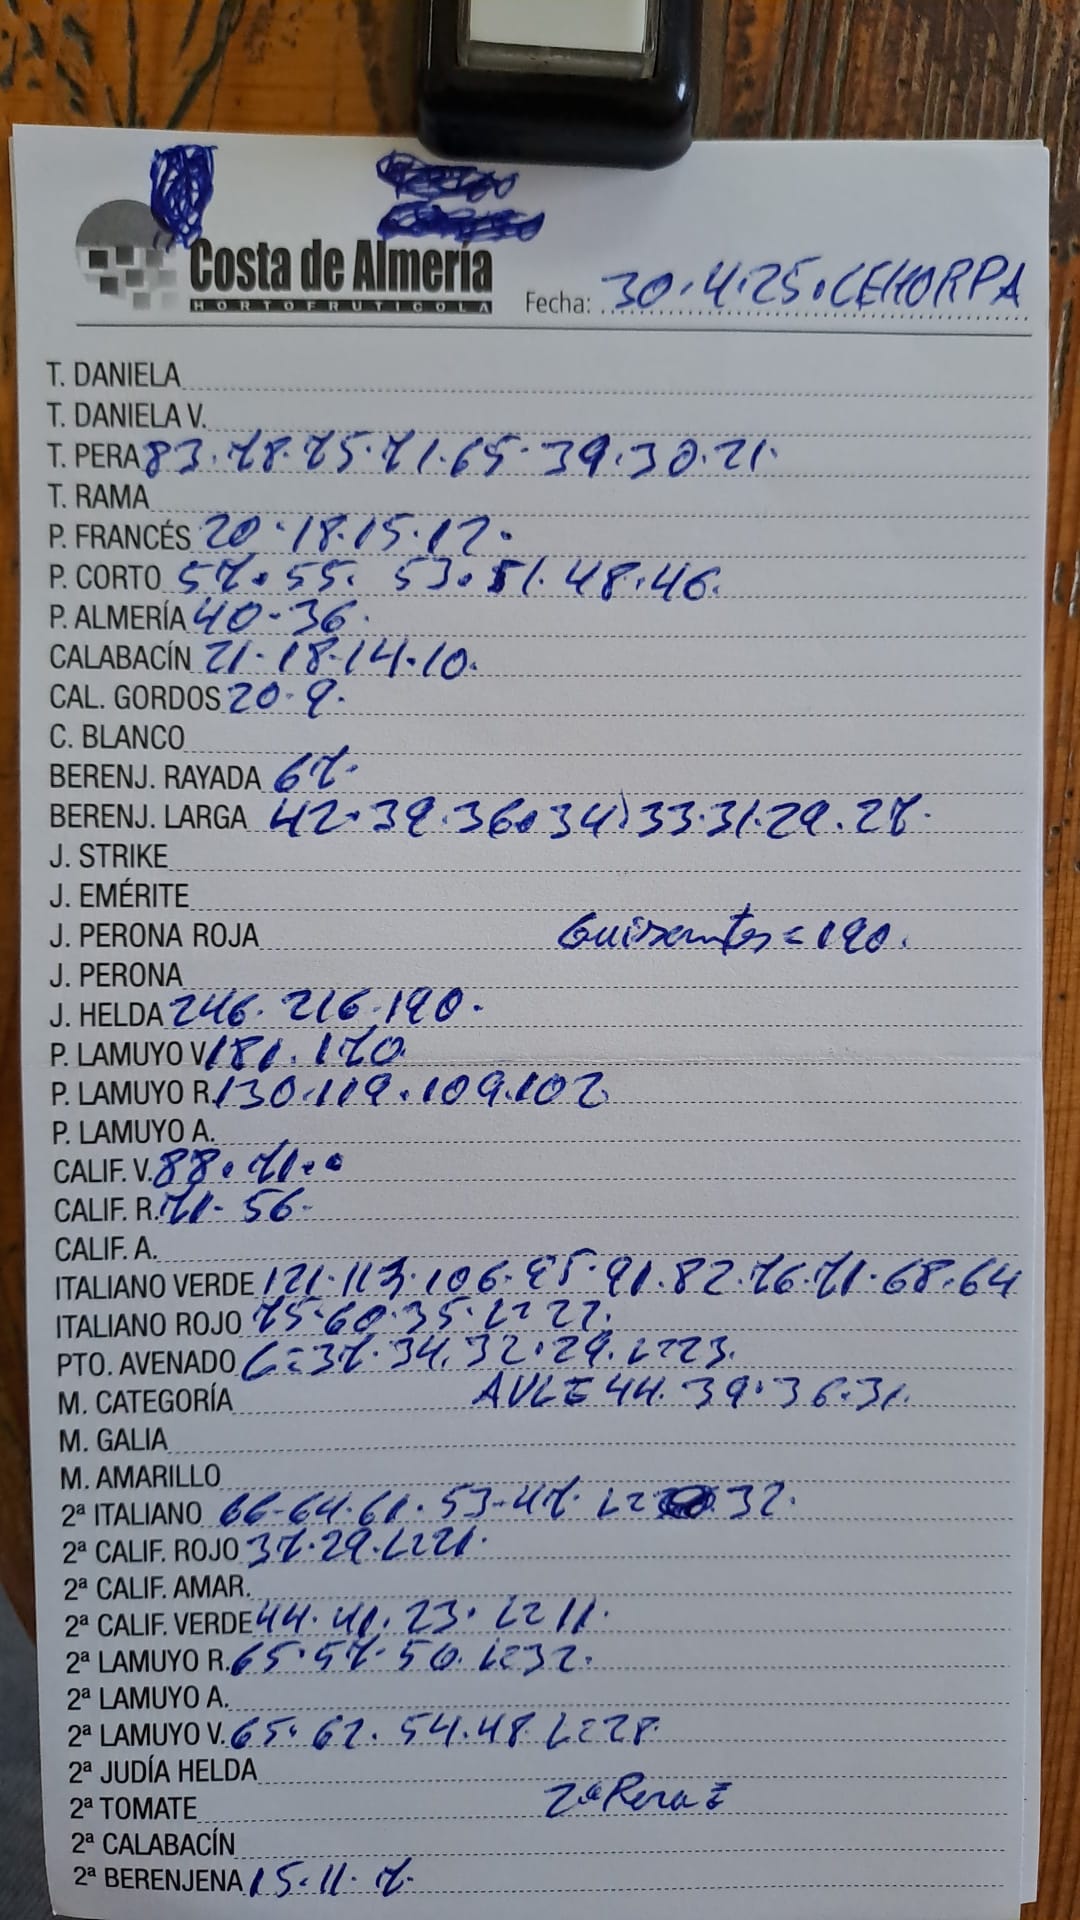 Costa de Almería
HORTOFRUTICOLA
Fecha: 30.4.25. CEHORPA
T. DANIELA
T. DANIELA V.
T. PERA 83.78.75.71.65.39.30.21.
T. RAMA
P. FRANCÉS 20.18.15.12.
P. CORTO 57.55.53.51.48.46.
P. ALMERÍA 40-36.
CALABACÍN 21.18.14.10.
CAL. GORDOS 20.9.
C. BLANCO
BERENJ. RAYADA 67.
BERENJ. LARGA 42.39.36.34)33.31.29.27.
J. STRIKE
J. EMÉRITE
J. PERONA ROJA Guisantes = 190.
J. PERONA
J. HELDA 246.216.190.
P. LAMUYO V. 181.170.
P. LAMUYO R. 130.119.109.102
P. LAMUYO A.
CALIF. V. 88.71.
CALIF. R. 71-56-
CALIF. A.
ITALIANO VERDE 121.113.106.95.91.82.76.71.68.64
ITALIANO ROJO 75.60.35.L=22.
PTO. AVENADO C=37.34.32.29.L=23.
M. CATEGORÍA 44.39.36.31.
M. GALIA
M. AMARILLO
2ª ITALIANO 66-64.61.53-47. L= 32.
2ª CALIF. ROJO 37.29.L=21.
2ª CALIF. AMAR.
2ª CALIF. VERDE 44.41.23. L=11.
2ª LAMUYO R. 65.57.50. L=32.
2ª LAMUYO A.
2ª LAMUYO V. 65.62.54.48 L=28.
2ª JUDÍA HELDA
2ª TOMATE 2ª Pera =
2ª CALABACÍN
2ª BERENJENA 15.11.7.